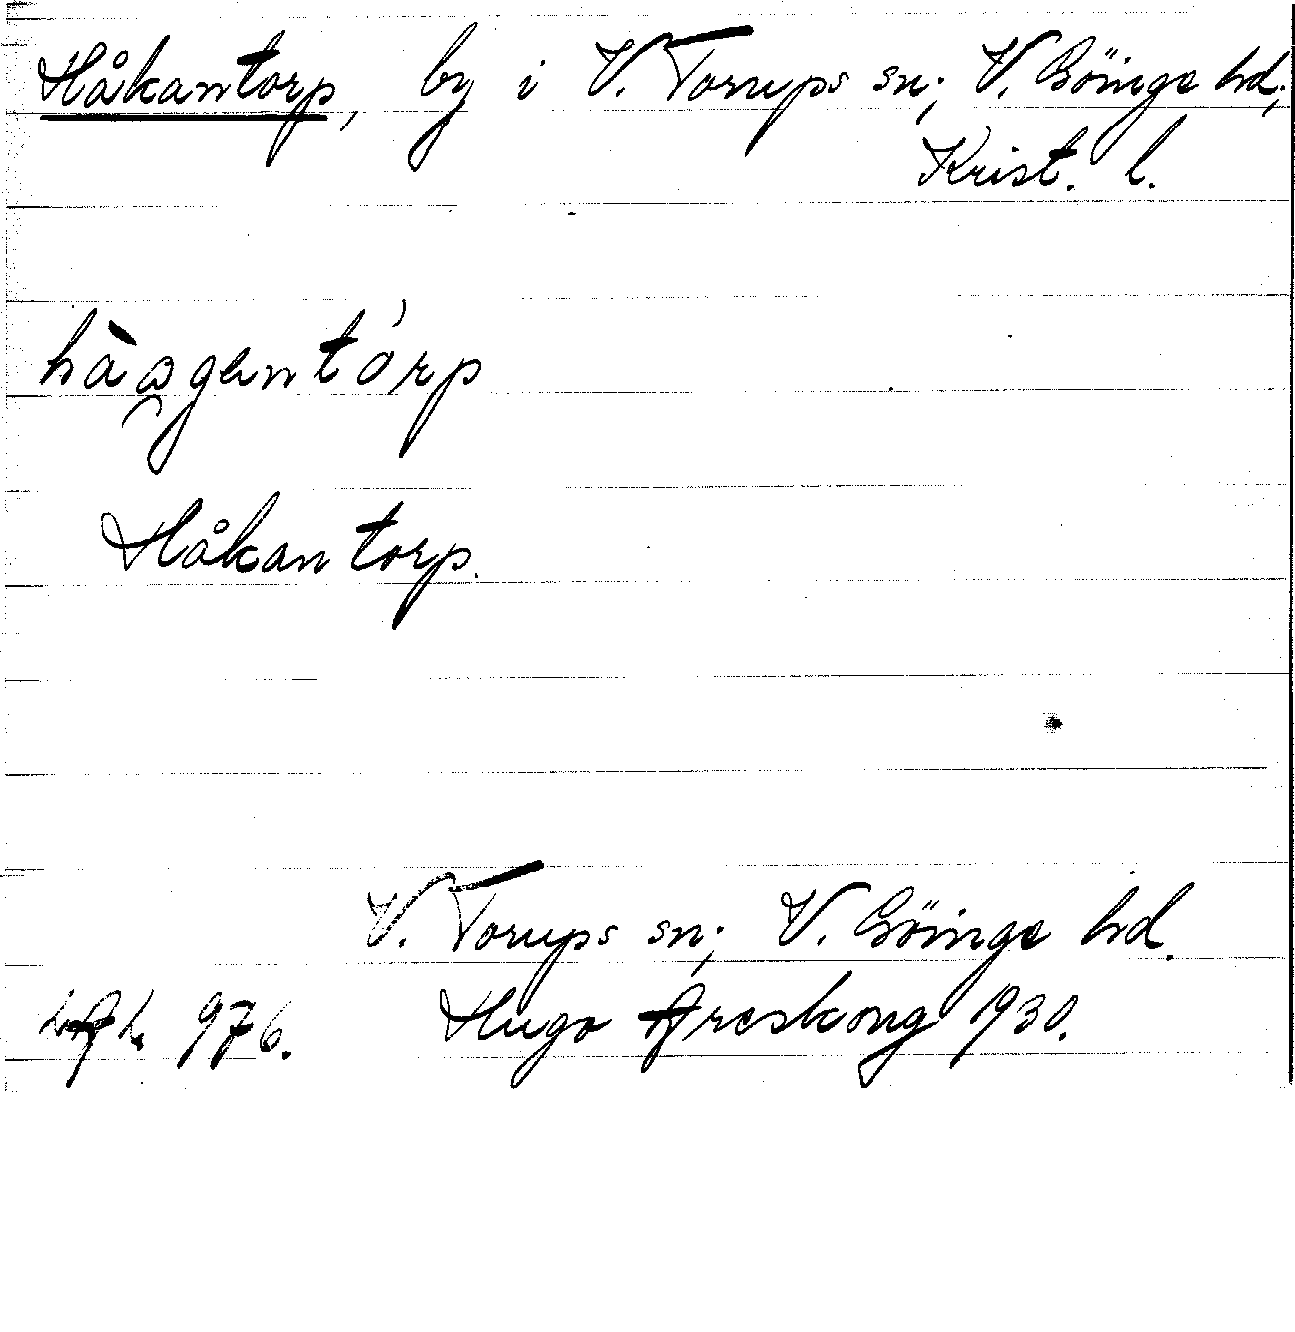 Håkantorp, by i V. Torups sn; V. Göinge hd;
Krist. l.
hàagentórp
Håkantorp.
V. Torups sn; V. Göinge hd.
976. Hugo Areskoug 1930.